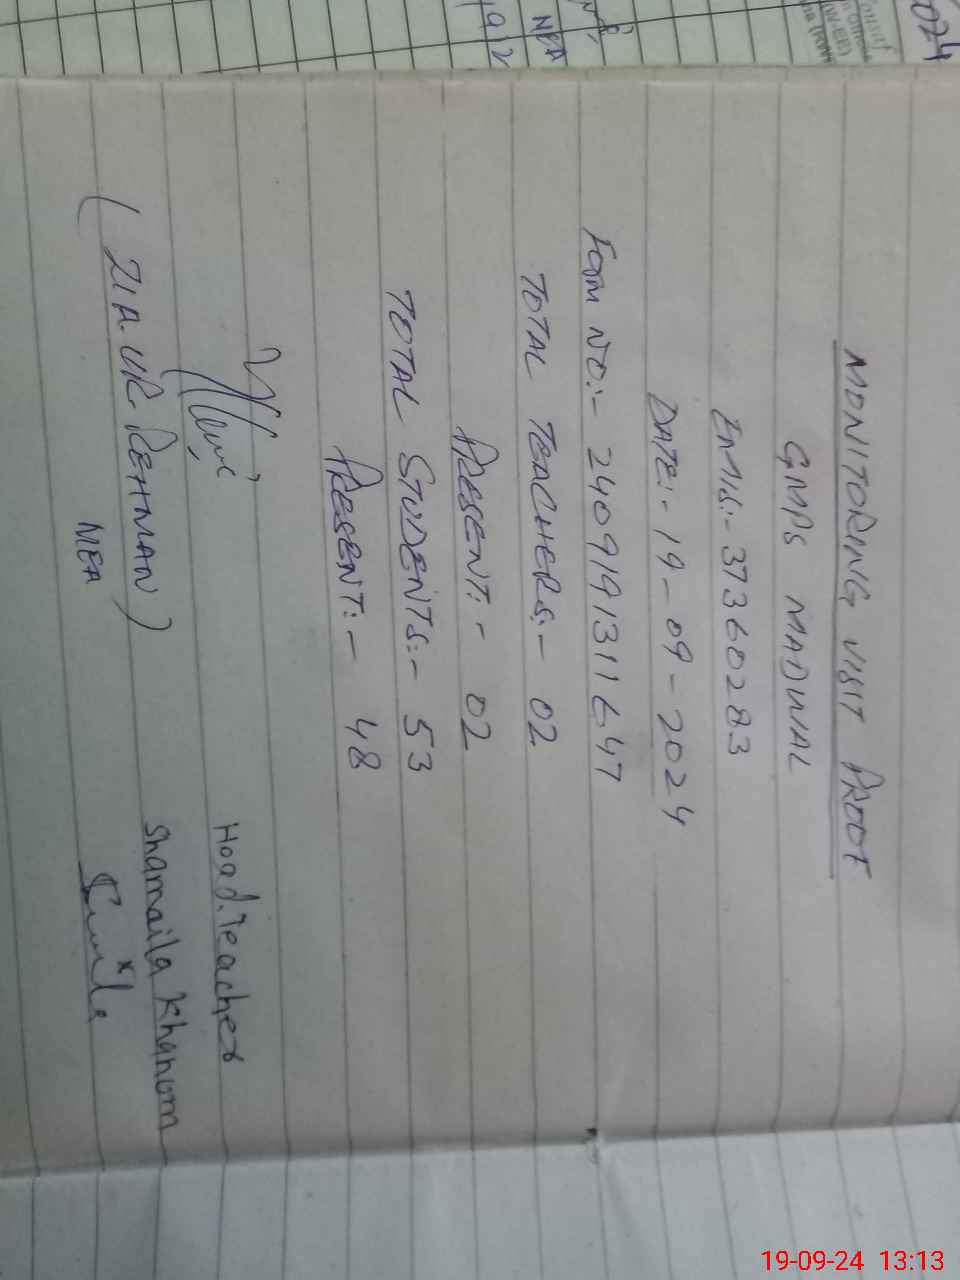 MONITORING VISIT PROOF
GMPS MADWAL
EMIS:- 37360283
DATE:- 19-09-2024
Form NO:- 240919131647
TOTAL TEACHERS:- 02
PRESENT:- 02
TOTAL STUDENTS:- 53
PRESENT:- 48
Head.Teacher
Shamaila Khanum
(ZIA.UR.REHMAN)
MEA
024
MEA
19-09-24 13:13